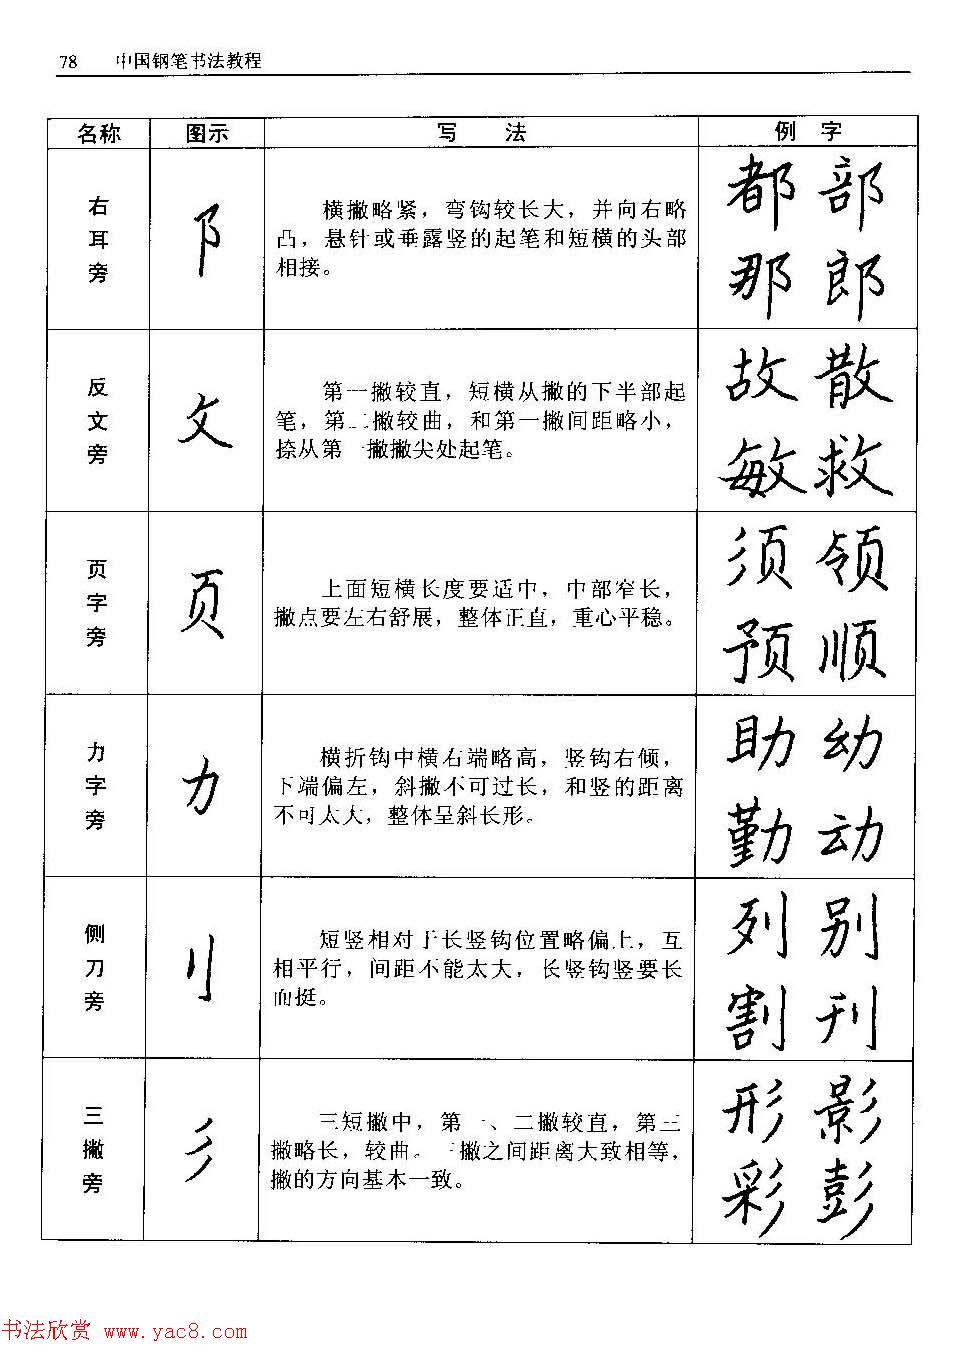 78 中国钢笔书法教程
名称 图示 写 法 例 字
右耳旁
阝
横撇略紧，弯钩较长大，并向右略
凸，悬针或垂露竖的起笔和短横的头部
相接。
都 部
那 郎
反文旁
攵
第一撇较直，短横从撇的下半部起
笔，第二撇较曲，和第一撇间距略小，
捺从第一撇撇尖处起笔。
故 散
敏 救
页字旁
页
上面短横长度要适中，中部窄长，
撇点要左右舒展，整体正直，重心平稳。
须 领
预 顺
力字旁
力
横折钩中横右端略高，竖钩右倾，
下端偏左，斜撇不可过长，和竖的距离
不可太大，整体呈斜长形。
助 幼
勤 动
侧刀旁
刂
短竖相对于长竖钩位置略偏上，互
相平行，间距不能太大，长竖钩竖要长
而挺。
列 别
割 刊
三撇旁
彡
三短撇中，第一、二撇较直，第三
撇略长，较曲。三撇之间距离大致相等，
撇的方向基本一致。
形 影
彩 彭
书法欣赏 www.yac8.com